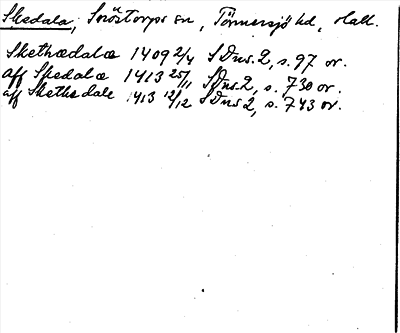 Skedala, Snöstorps sn, Tönnersjö hd, Hall.
Skethædalæ 1409 2/4 SDns. 2, s. 97 or.
aff Skedalæ 1413 25/11 SDns. 2, s. 730 or.
aff Skethedale 1413 12/12 SDns 2, s. 743 or.